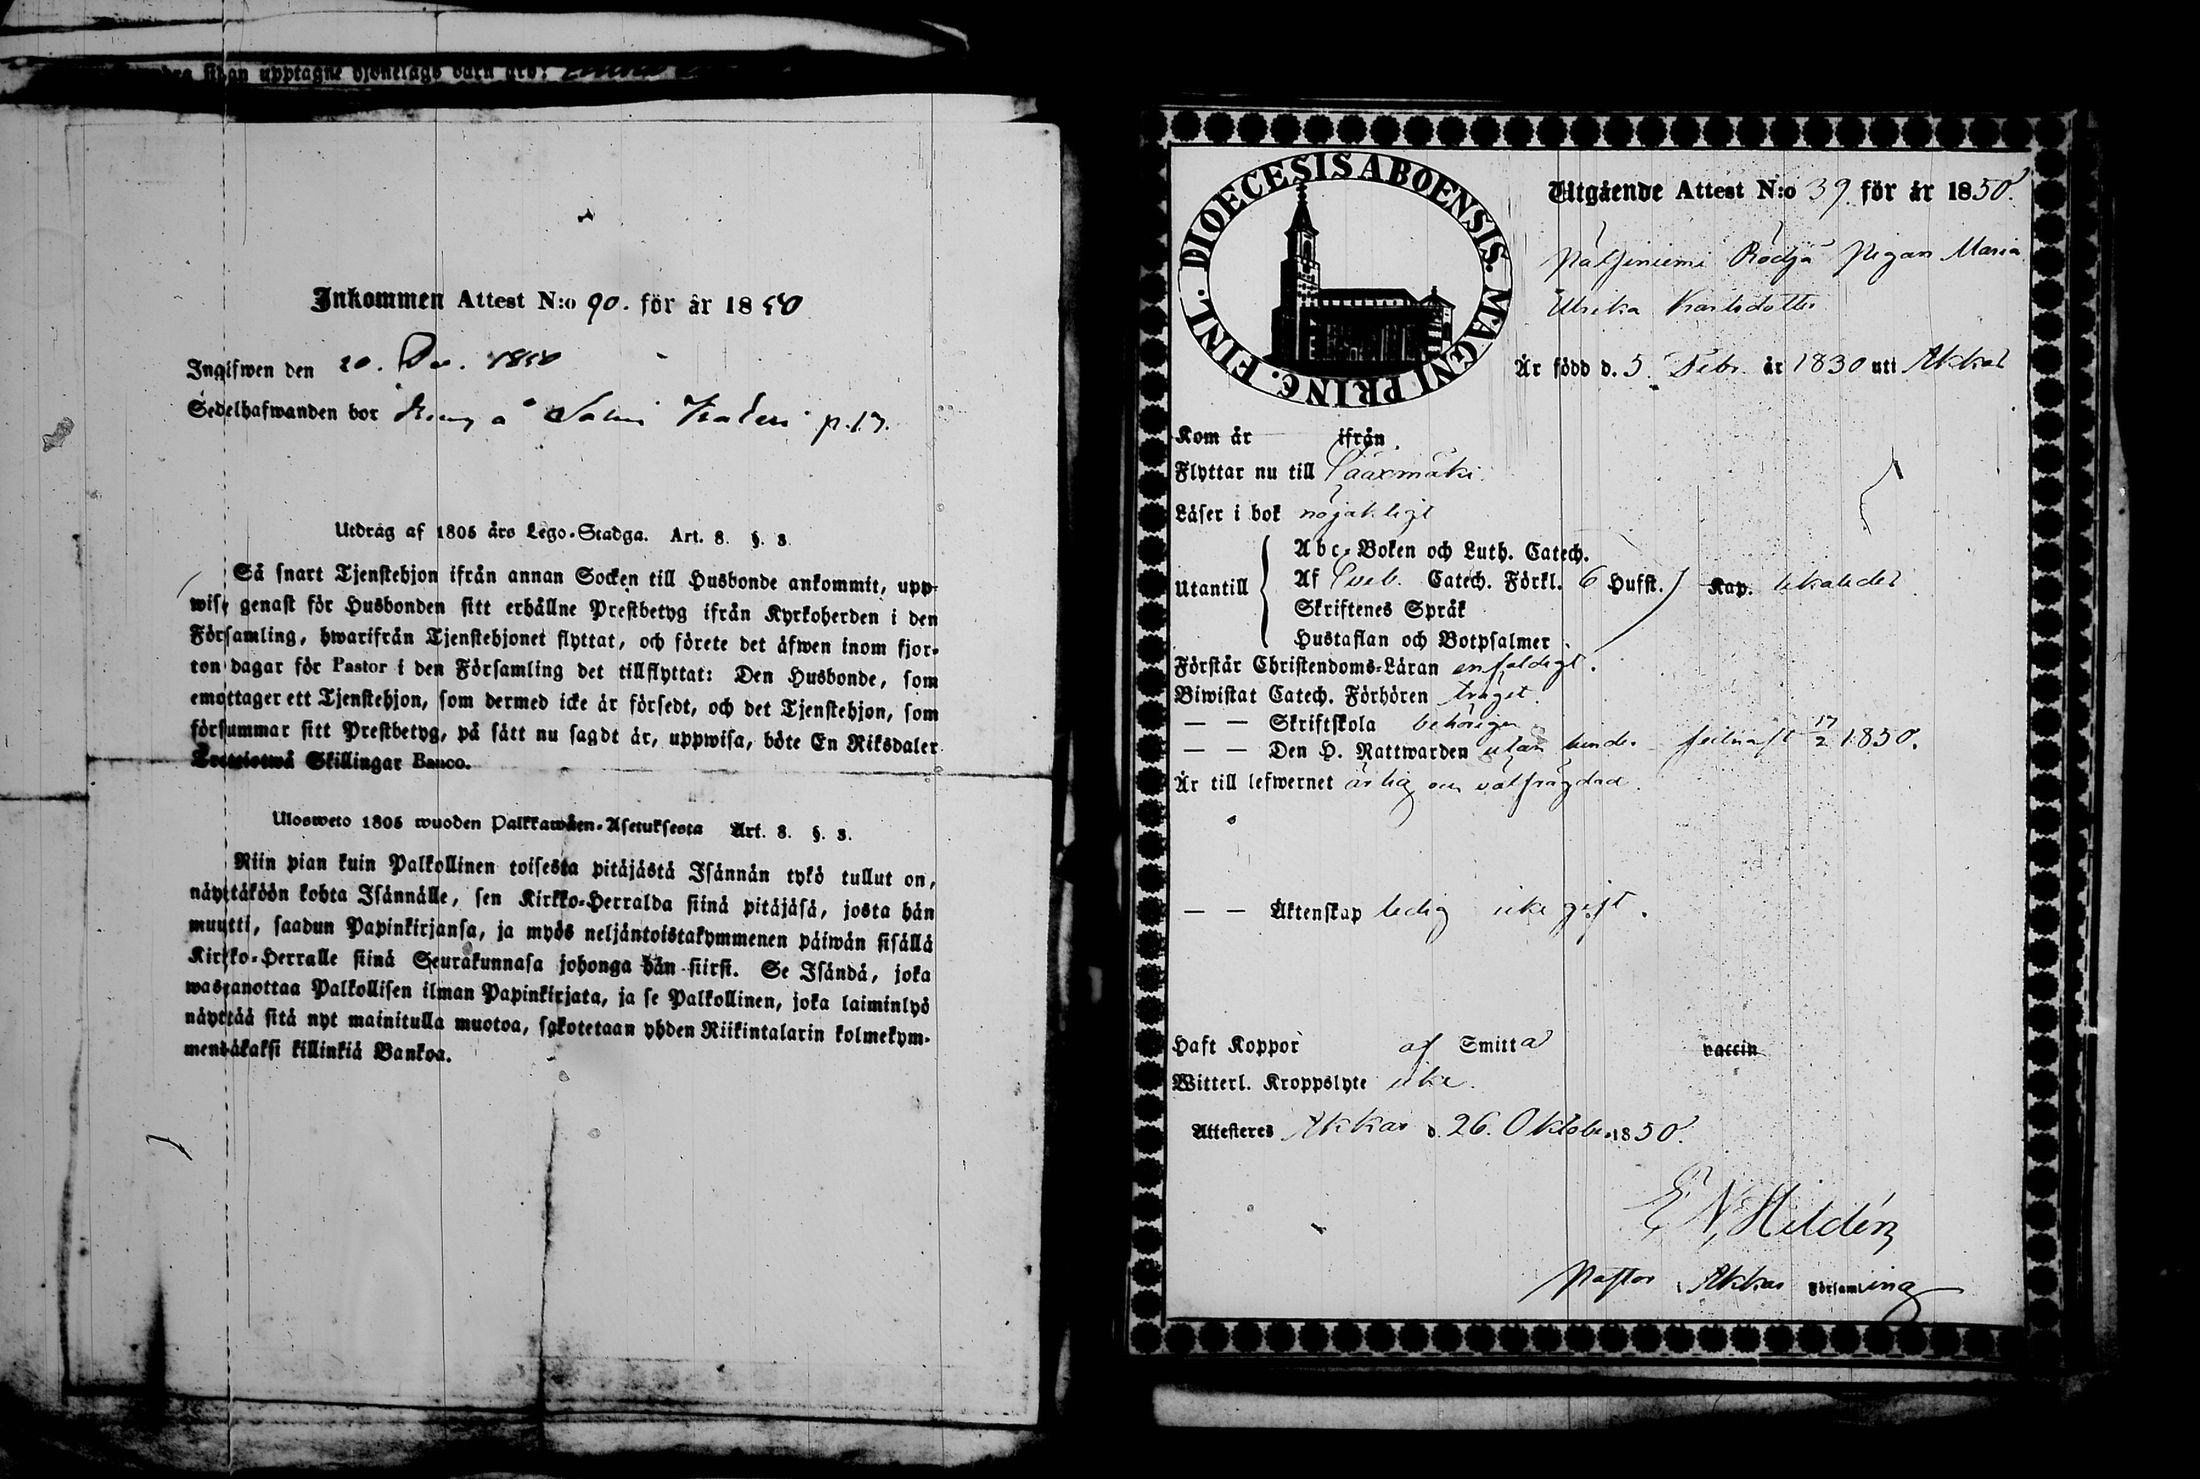 sidan upptagne hjonelags barn äro:
Inkommen Attest N:o 90. för år 1850
Ingifwen den 20. Dec. 1850
Sedelhafwanden bor å p. 17.
Utdrag af 1805 års Lego-Stadga. Art. 8. §. 3.
Så snart Tjenstehjon ifrån annan Socken till Husbonde ankommit, upp-
wise genast för Husbonden sitt erhållne Prestbetyg ifrån Kyrkoherden i den
Församling, hwarifrån Tjenstehjonet flyttat, och förete det äfwen inom fjor-
ton dagar för Pastor i den Församling det tillflyttat: Den Husbonde, som
emottager ett Tjenstehjon, som dermed icke är försedt, och det Tjenstehjon, som
försummar sitt Prestbetyg, på sätt nu sagdt är, uppwisa, böte En Riksdaler
Trettiotwå Skillingar Banco.
Ulosweto 1805 wuoden Palkkawäen-Asetuksesta Art. 8. §. 3.
Niin pian kuin Palkollinen toisesta pitäjästä Isännän tykö tullut on,
näyttäköön kohta Isännälle, sen Kirkko-Herralda siinä pitäjäsä, josta hän
muutti, saadun Papinkirjansa, ja myös neljäntoistakymmenen päiwän sisällä
Kirkko-Herralle siinä Seurakunnasa johonga hän siirsi. Se Isändä, joka
wastanottaa Palkollisen ilman Papinkirjata, ja se Palkollinen, joka laiminlyö
näyttää sitä nyt mainitulla muotoa, sakotetaan yhden Riikintalarin kolmekym-
mendäkaksi killinkiä Bankoa.
DIOECESIS ABOENSIS. MAGNI PRINC. FINL.
Utgående Attest N:o 39. för år 1850.
Rödjä Pigan Maria
Ulrika Karlsdotter
Är född d. 5 Febr. år 1830 uti Akkas
Kom år ifrån
Flyttar nu till Sääxmäki.
Läser i bok nöjaktigt
Utantill
Abc-Boken och Luth. Catech.
Af Sveb. Catech. Förkl. 6 Hufst. Kap.
Skriftenes Språk
Hustaflan och Botpsalmer
Förstår Christendoms-Läran enfaldigt.
Biwistat Catech. Förhören träget.
— — Skriftskola behörigen
— — Den H. Nattwarden utan hinder 17/2 1850.
Är till lefwernet ärlig och välfrägdad.
— — Äktenskap ledig icke gift.
Haft Koppor af Smitta vaccin
Witterl. Kroppslyte icke.
Attesteras Akkas d. 26. Oktober 1850.
E N Hildén
Pastor i Akkas Församling